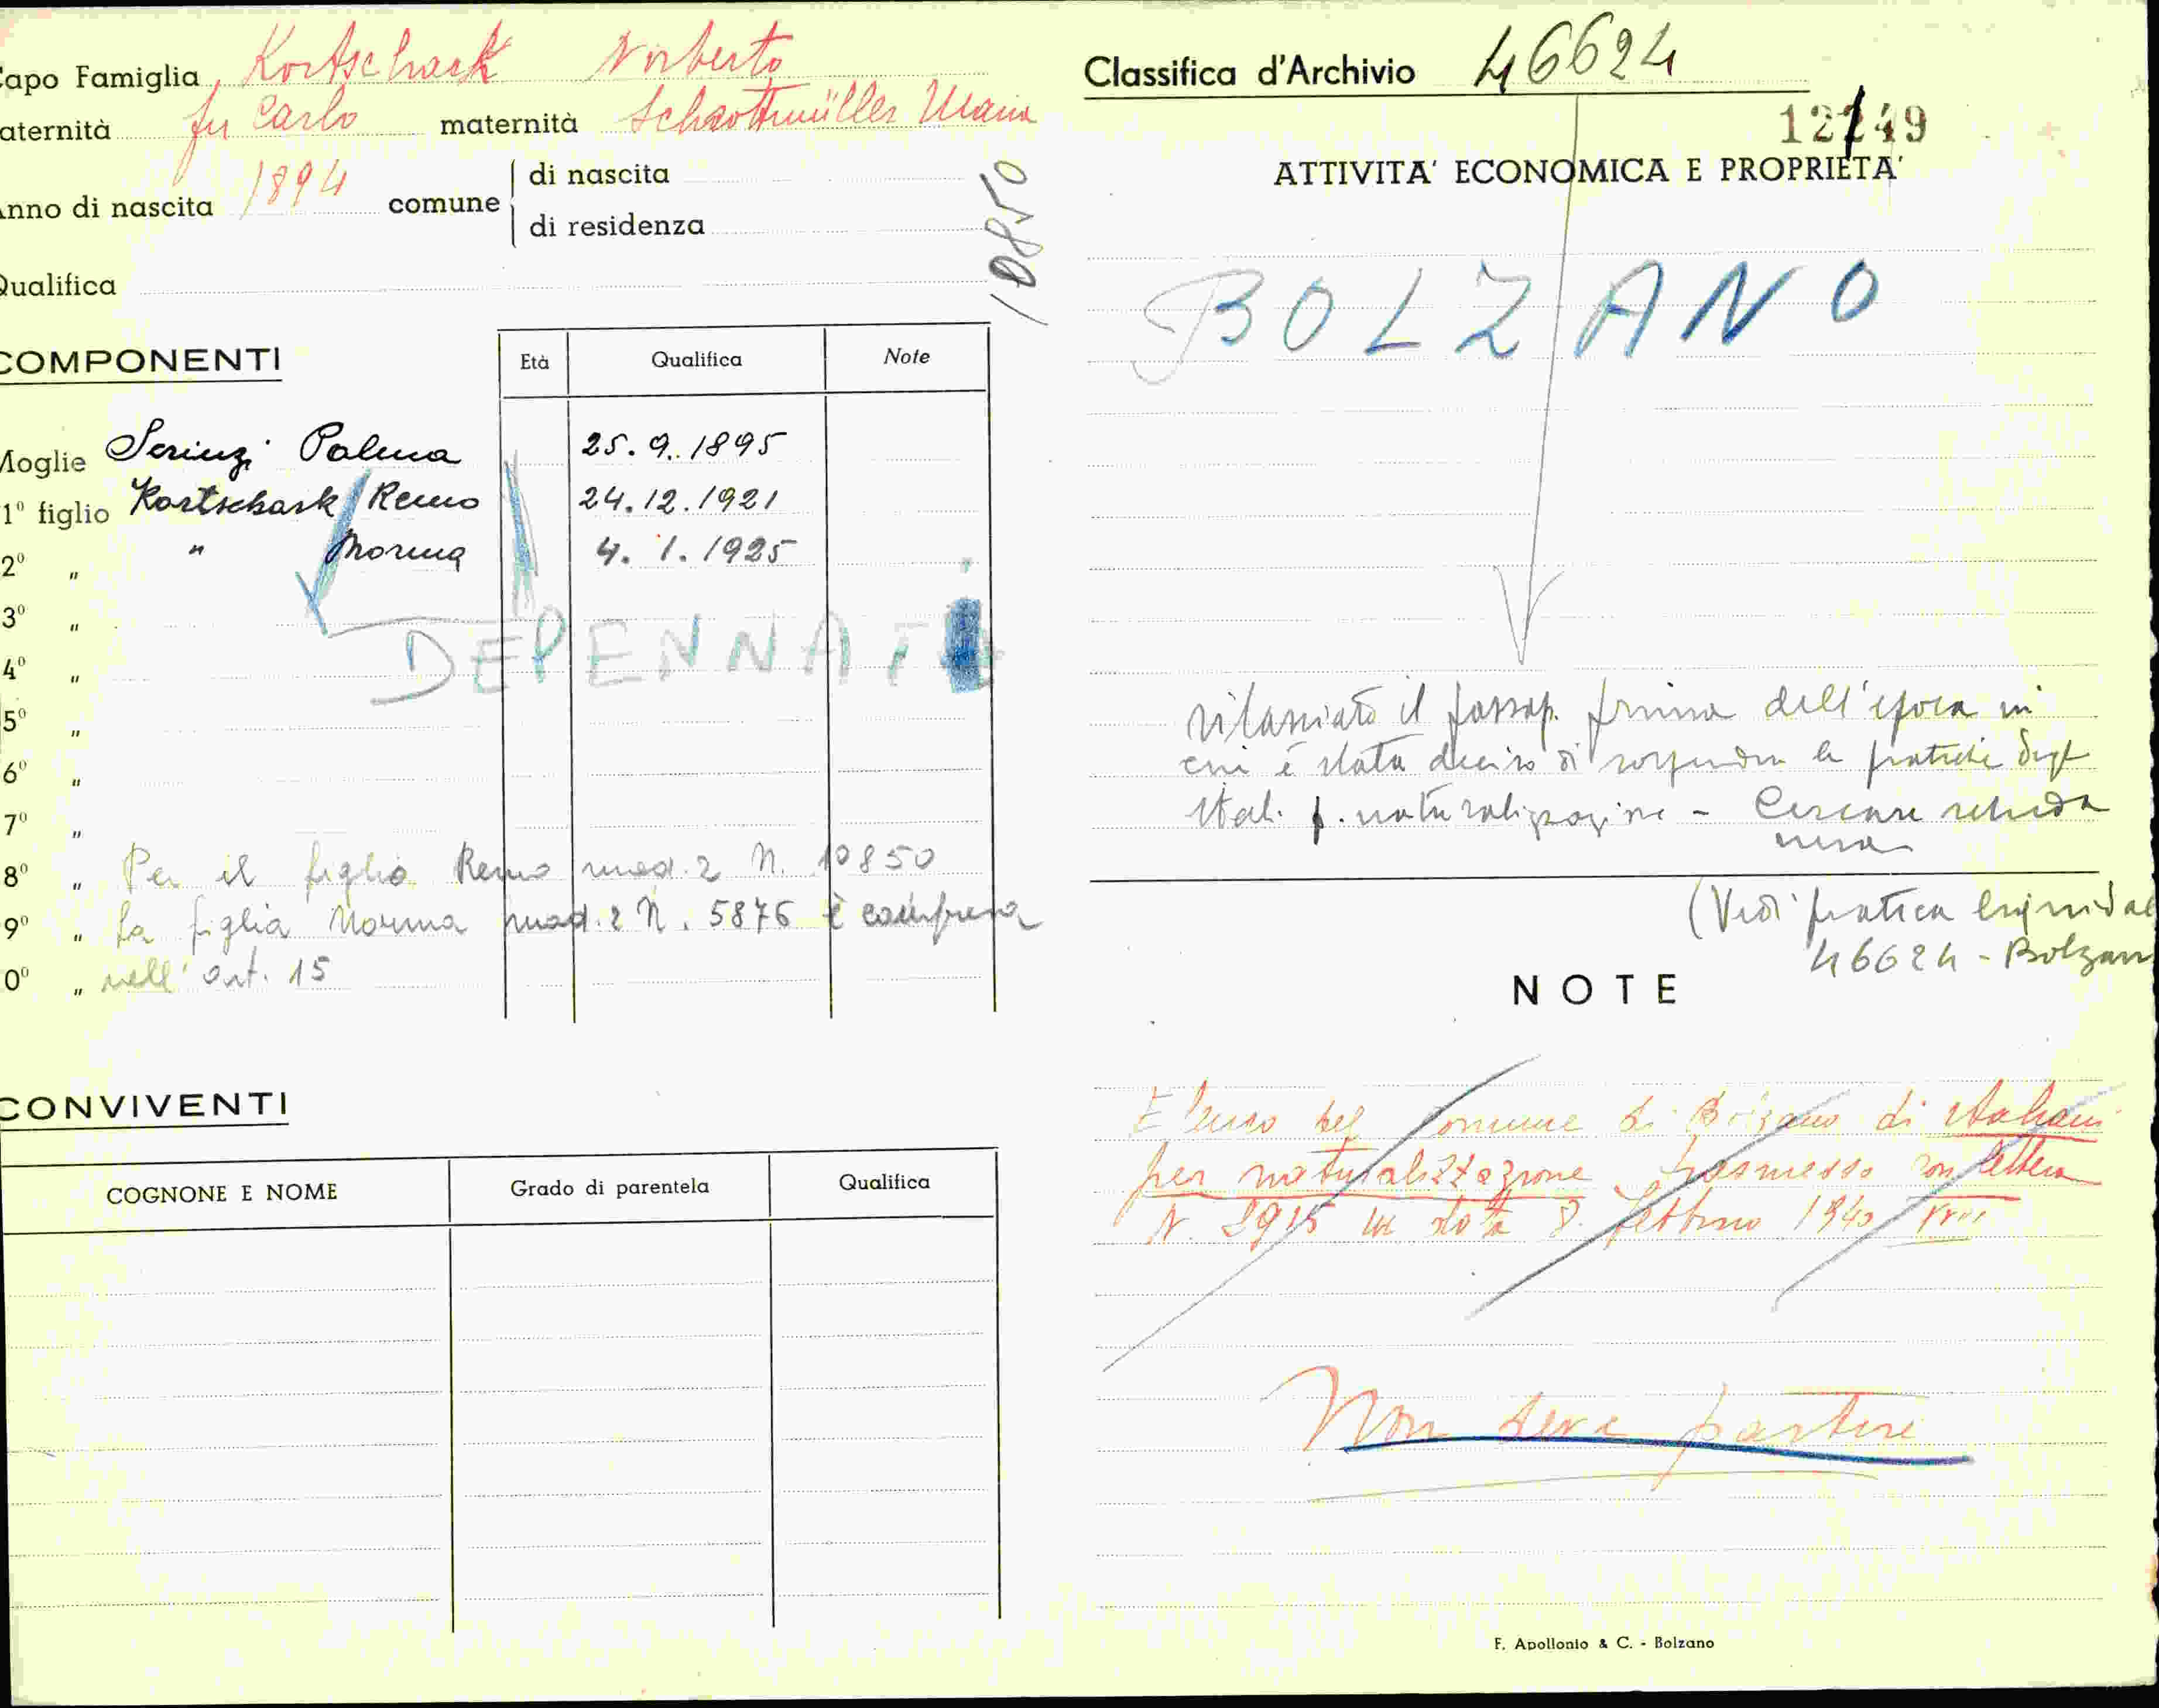 apo Famiglia Kortschack Norberto
aternità fu Carlo maternità Schrottmüller Maria
nno di nascita 1894 comune
di nascita
di residenza
Qualifica
10850
COMPONENTI
Età Qualifica Note
Moglie Scrinzi Palma 25.9.1895
1º figlio Kortschack Remo 24.12.1921
2º " " Norma 4.1.1925
3º "
DEPENNATO
4º "
5º "
6º "
7º "
8º " Per il figlio Remo mod. 2 N. 10850
9º " la figlia Norma mod. 2 N. 5876 è compresa
0º " nell' art. 15
CONVIVENTI
COGNONE E NOME Grado di parentela Qualifica
Classifica d'Archivio 46624
12749
ATTIVITA' ECONOMICA E PROPRIETA'
BOLZANO
rilasciato il passap. prima dell'epoca in
cui è stata deciso di sospender le pratiche degli
ital. p. naturalizzazione - Cercare scheda
(Vedi pratica
46624 - Bolzan
NOTE
Elenco del Comune di Bolzano di italiani
per naturalizzazione trasmesso con lettera
N. 2915 in data 8. febbraio 1940 XVIII
Non deve partire
F. Apollonio & C. - Bolzano